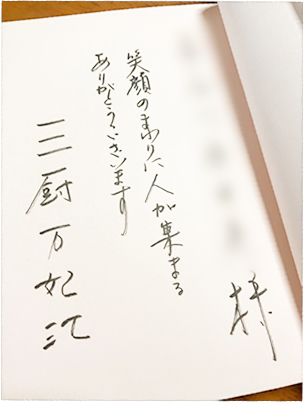 様
笑顔のまわりに人が集まる
ありがとうございます
三厨万妃江